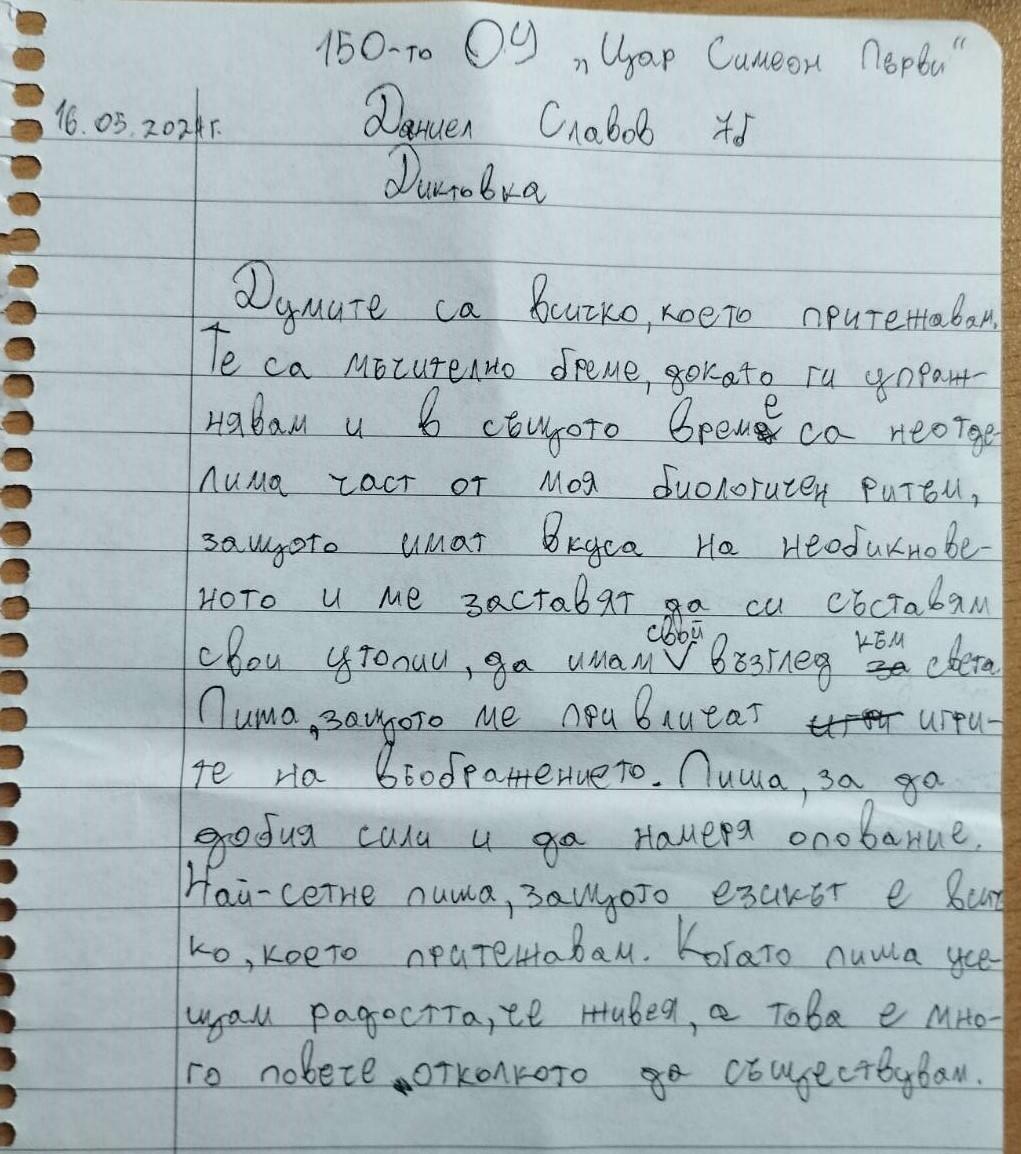 150-то ОУ „Цар Симеон Първи“
16.05.2024г. Даниел Славов 7б
Диктовка
Думите са всичко, което притежавам.
Те са мъчително бреме, докато ги упраж-
нявам и в същото време са неотде-
лима част от моя биологичен ритъм,
защото имат вкуса на необикнове-
ното и ме заставят да си съставям
свои утопии, да имам свой възглед към света.
Пиша, защото ме привличат игри-
те на въображението. Пиша, за да
добия сили и да намеря опование.
Най-сетне пиша, защото езикът е вси
ко, което притежавам. Когато пиша усе-
щам радостта, че живея, а това е мно-
го повече, отколкото да съществувам.